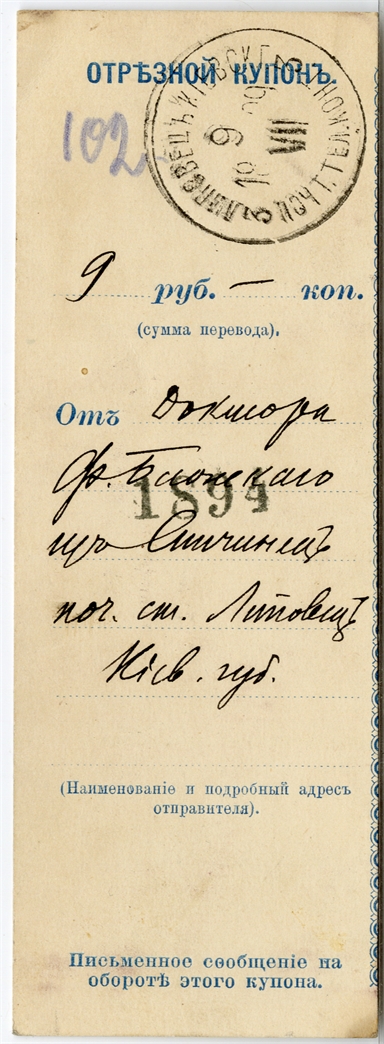 ОТРѢЗНОЙ КУПОНЪ.
102
9 руб. — коп.
(сумма перевода).
Отъ Доктора
Ф.
1894
изъ
поч. ст. Липовецъ
Кіев. губ.
(Наименованіе и подробный адресъ
отправителя).
Письменное сообщеніе на
оборотѣ этого купона.